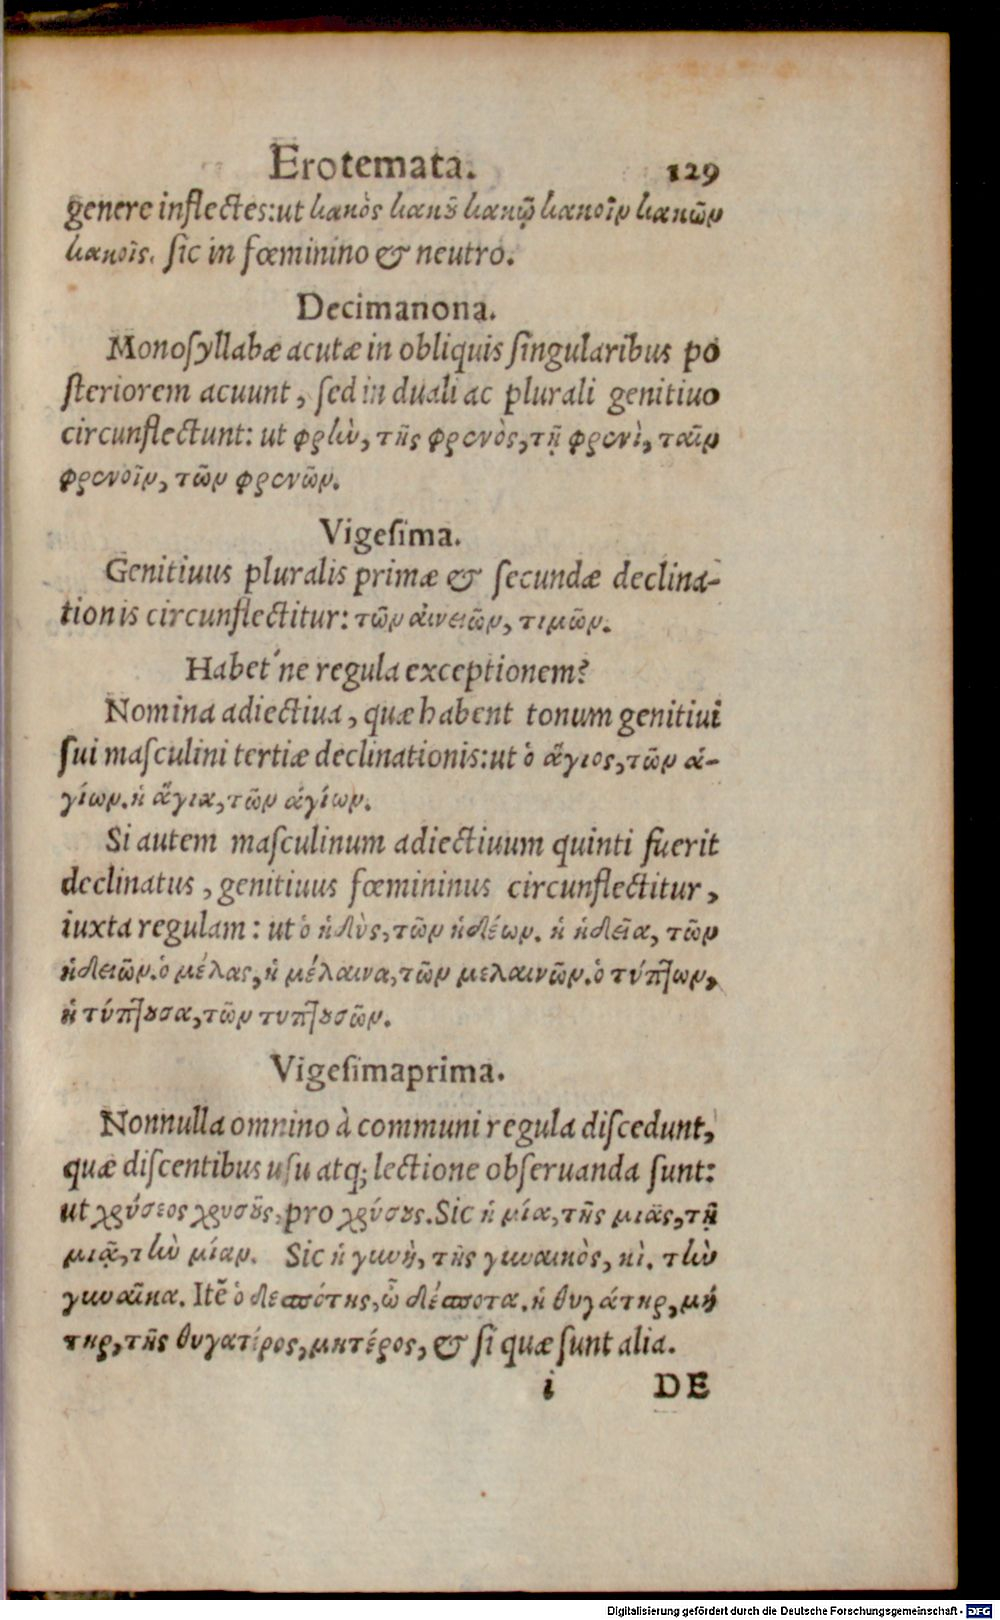 Erotemata. 129
genere inflectes: ut κακὸς κακοῦ κακῷ κακοῖν κακῶν
κακοῖς. sic in fœminino & neutro.
Decimanona.
Monoſyllabæ acutæ in obliquis ſingularibus po
ſteriorem acuunt, ſed in duali ac plurali genitiuo
circunflectunt: ut φρὴν, τῆς φρενὸς, τῇ φρενὶ, ταῖν
φρενοῖν, τῶν φρενῶν.
Vigeſima.
Genitiuus pluralis primæ & ſecundæ declina-
tionis circunflectitur: τῶν αἰνειῶν, τιμῶν.
Habet'ne regula exceptionem?
Nomina adiectiua, quæ habent tonum genitiui
ſui maſculini tertiæ declinationis: ut ὁ ἅγιος, τῶν ἁ-
γίων. ἡ ἅγια, τῶν ἁγίων.
Si autem maſculinum adiectiuum quinti fuerit
declinatus, genitiuus fœmininus circunflectitur,
iuxta regulam: ut ὁ ἡδὺς, τῶν ἡδέων. ἡ ἡδεῖα, τῶν
ἡδειῶν. ὁ μέλας, ἡ μέλαινα, τῶν μελαινῶν. ὁ τύπτων,
ἡ τύπτουσα, τῶν τυπτουσῶν.
Vigeſimaprima.
Nonnulla omnino à communi regula diſcedunt,
quæ diſcentibus uſu atq; lectione obſeruanda ſunt:
ut χρύσεος χρυσοῦς, pro χρύσους. Sic ἡ μία, τῆς μιᾶς, τῇ
μιᾷ, τὴν μίαν. Sic ἡ γυνὴ, τῆς γυναικὸς, κὶ. τὴν
γυναῖκα. Itē ὁ δεσπότης, ὦ δέσποτα. ἡ θυγάτηρ, μή
τηρ, τῆς θυγατέρος, μητέρος, & ſi quæ ſunt alia.
i DE
Digitalisierung gefördert durch die Deutsche Forschungsgemeinschaft - DFG